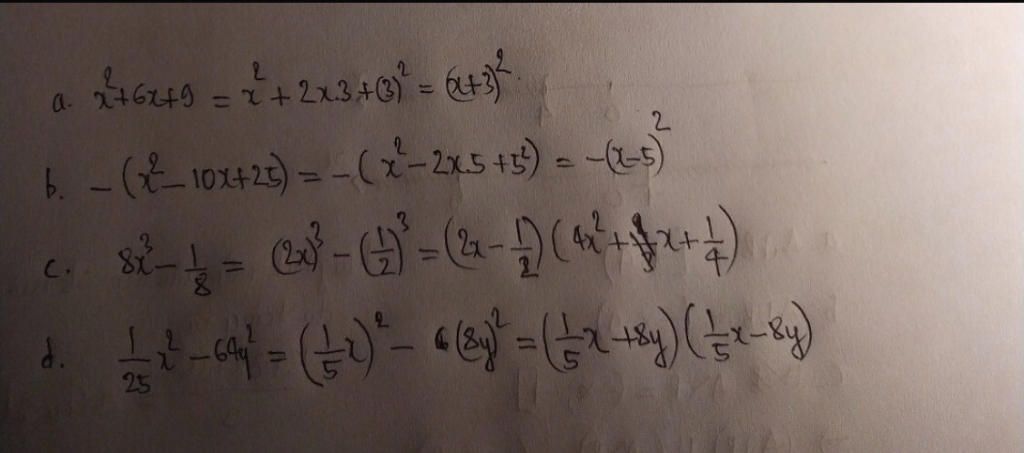 a. x²+6x+9 = x²+2x.3+(3)² = (x+3)².
b. -(x²-10x+25) = -(x²-2x.5+5²) = -(x-5)²
c. 8x³-1/8 = (2x)³-(1/2)³ = (2x-1/2)(4x²+x+1/4)
d. 1/25x²-64y² = (1/5x)²-(8y)² = (1/5x+8y)(1/5x-8y)